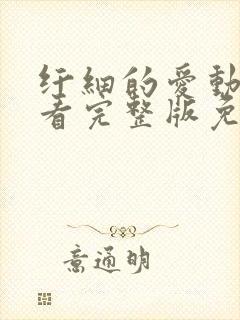 纤细的爱动
看完整版免
意通明